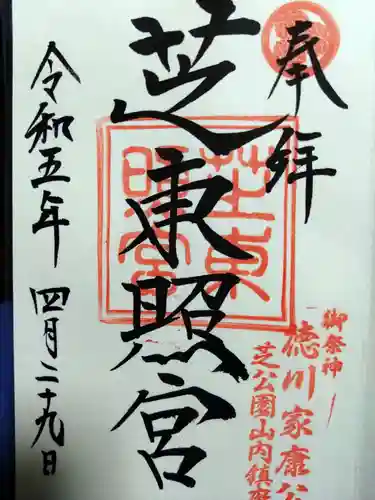 奉拝
御祭神
徳川家康公
芝公園山内鎮座
芝東照宮
芝東照宮
令和五年四月二十九日